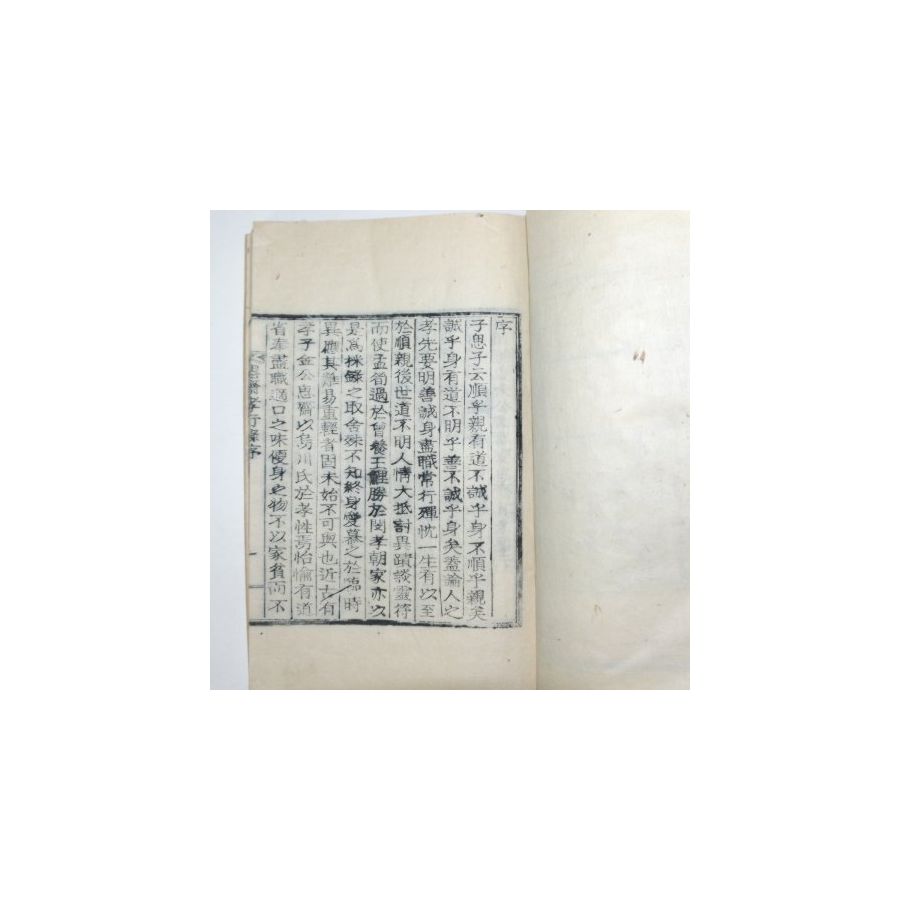 序
子思子云順乎親有道不誠乎身不順乎親矣
誠乎身有道不明乎善不誠乎身矣蓋論人之
孝先要明善誠身盡職常行殫忱一生有以至
於順親後世道不明人情大抵討異蹟談靈符
而使孟筍過於曾養王鯉勝於閔孝朝家亦以
是爲採錄之取舍殊不知終身愛慕之於臨時
異應其難易重輕者固未始不可與也近古有
孝子金公思齋以烏川氏於孝性焉怡愉有道
省奉盡職適口之味便身之物不以家貧而不
孝行錄序